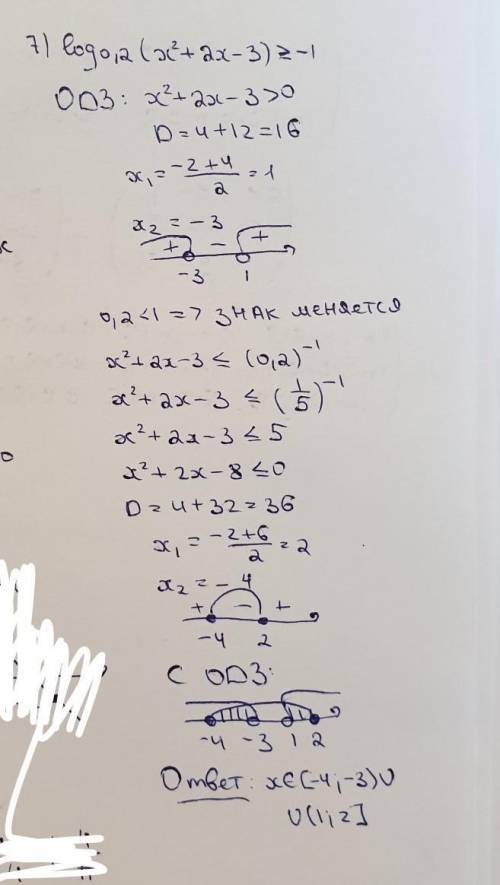 7) log0,2 (x²+2x-3) ≥ -1
ОДЗ: x²+2x-3>0
D=4+12=16
x₁ = (-2+4)/2 = 1
x₂ = -3
+ - +
-3 1
0,2<1 => знак меняется
x²+2x-3 ≤ (0,2)⁻¹
x²+2x-3 ≤ (1/5)⁻¹
x²+2x-3 ≤ 5
x²+2x-8 ≤ 0
D=4+32=36
x₁ = (-2+6)/2 = 2
x₂ = -4
+ - +
-4 2
С ОДЗ:
-4 -3 1 2
Ответ: x∈[-4;-3)∪
∪(1;2]